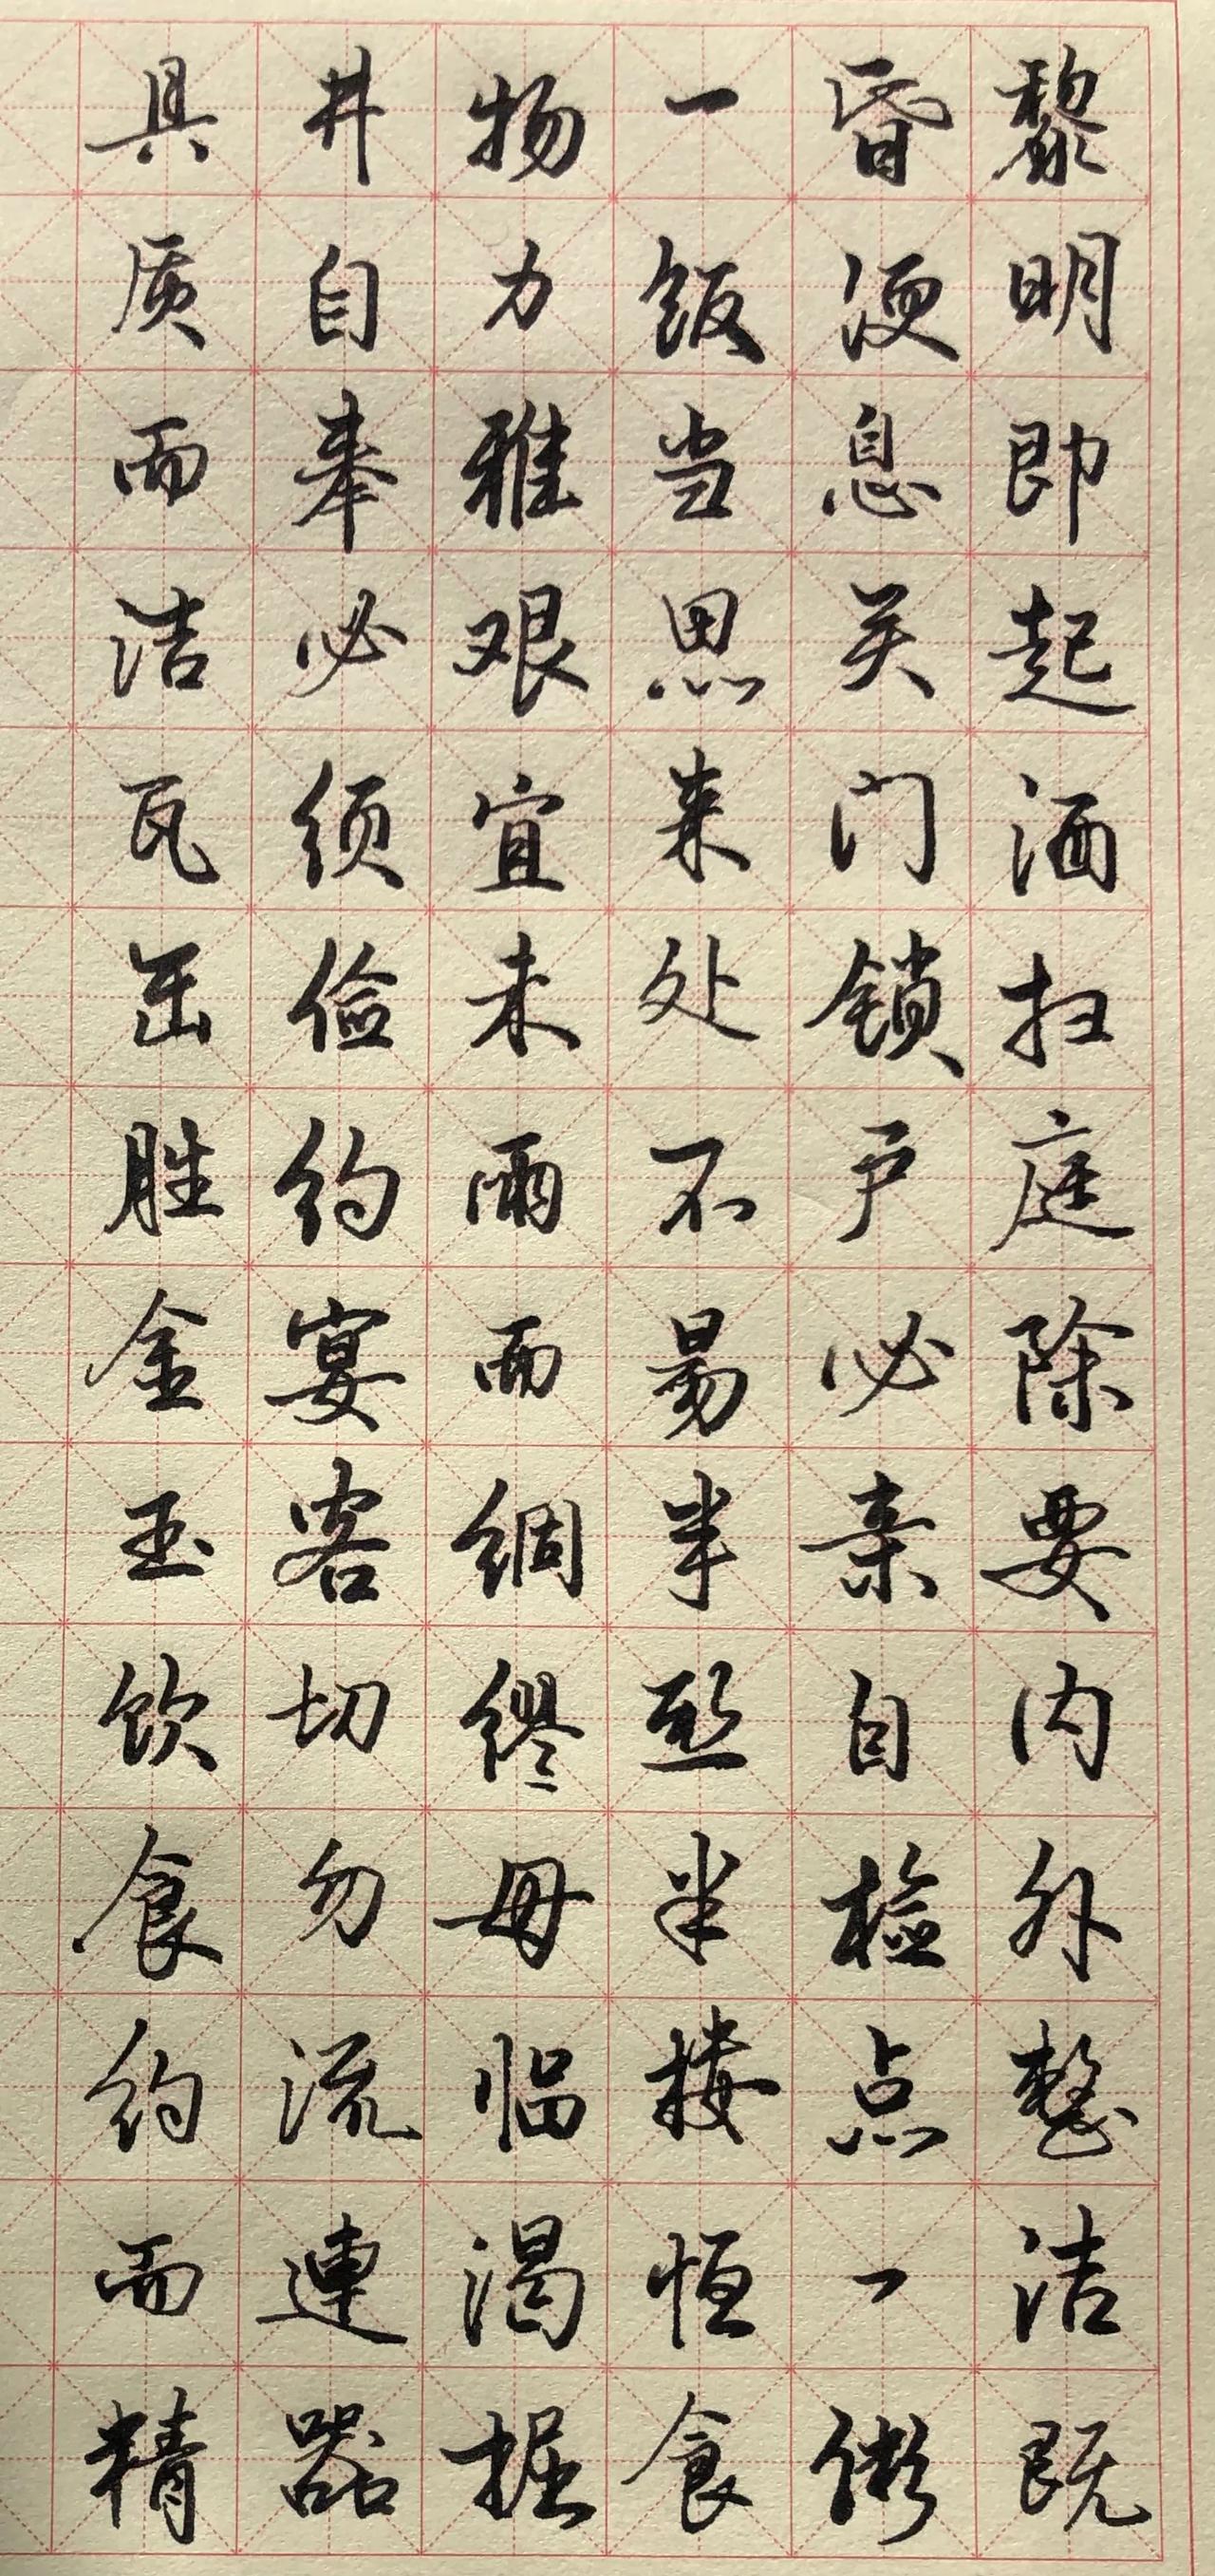 黎明即起洒扫庭除要内外整洁既
昏便息关门锁户必亲自检点一粥
一饭当思来处不易半丝半缕恒食
物力维艰宜未雨而绸缪毋临渴掘
井自奉必须俭约宴客切勿流連器
具质而洁瓦缶胜金玉饮食约而精